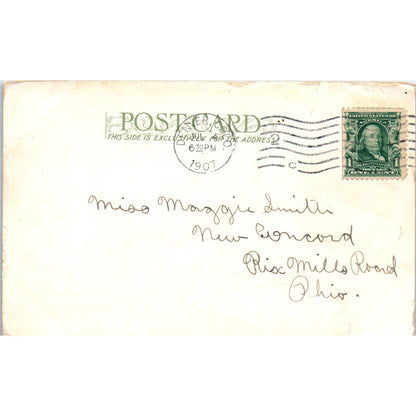 POST CARD
THIS SIDE IS EXCLUSIVELY FOR THE ADDRESS
DENVER, COLO.
JUL 4
6 30 PM
1907
ONE CENT
Miss Maggie Smith
New Concord
Rix Mills Road
Ohio.